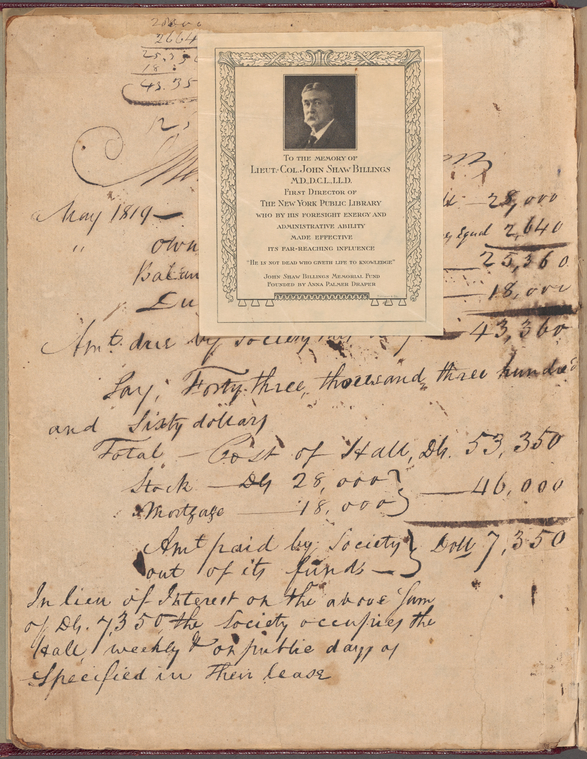 2664
43.35
TO THE MEMORY OF
LIEUT.-COL. JOHN SHAW BILLINGS
M.D., D.C.L., LL.D.
FIRST DIRECTOR OF
THE NEW YORK PUBLIC LIBRARY
WHO BY HIS FORESIGHT ENERGY AND
ADMINISTRATIVE ABILITY
MADE EFFECTIVE
ITS FAR-REACHING INFLUENCE
"HE IS NOT DEAD WHO GIVETH LIFE TO KNOWLEDGE"
JOHN SHAW BILLINGS MEMORIAL FUND
FOUNDED BY ANNA PALMER DRAPER
May 1819 — 28,000
" own Equal 2,640
25,360
18,000
Amt due by Society 43,360
Say, Forty three, thousand, three hundred
and Sixty dollars
Total — Cost of Hall, Dls. 53,350
Stock — Dls 28,000 } — 46,000
Mortgage — 18,000
Amt paid by Society } Doll 7,350
out of its funds —
In lieu of Interest on the above Sum
of Dls. 7,350 the Society occupies the
Hall weekly & on public days as
Specified in their lease